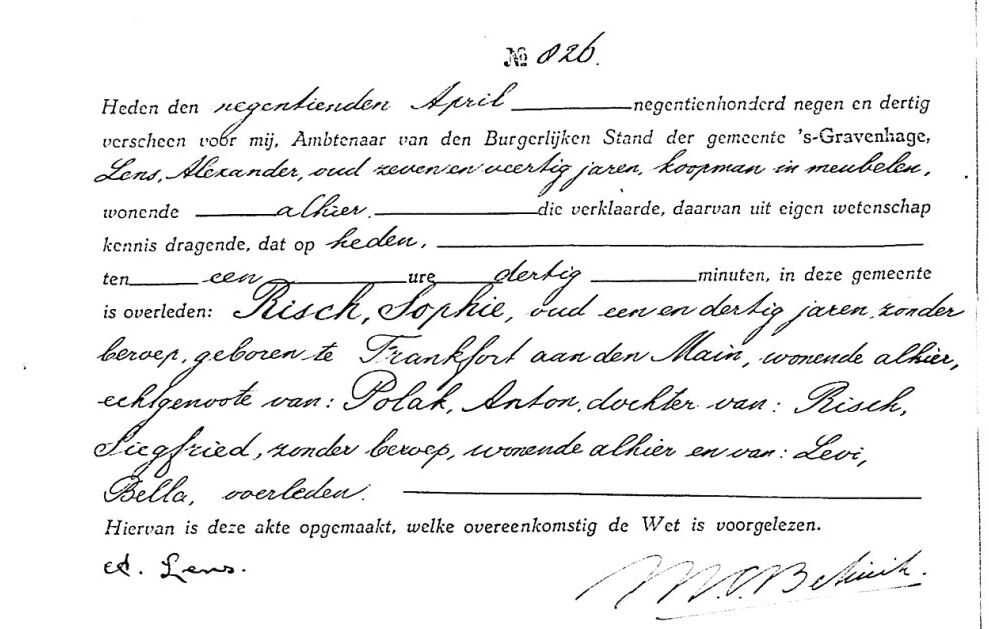 № 826.
Heden den negentienden April negentienhonderd negen en dertig
verscheen voor mij, Ambtenaar van den Burgerlijken Stand der gemeente 's-Gravenhage,
Lens, Alexander, oud zeven en veertig jaren, koopman in meubelen,
wonende alhier. die verklaarde, daarvan uit eigen wetenschap
kennis dragende, dat op heden,
ten een ure dertig minuten, in deze gemeente
is overleden: Risch, Sophie, oud een en dertig jaren, zonder
beroep, geboren te Frankfort aan den Main, wonende alhier,
echtgenoote van: Polak, Anton, dochter van: Risch,
Siegfried, zonder beroep, wonende alhier en van: Levi,
Bella, overleden.
Hiervan is deze akte opgemaakt, welke overeenkomstig de Wet is voorgelezen.
A. Lens.